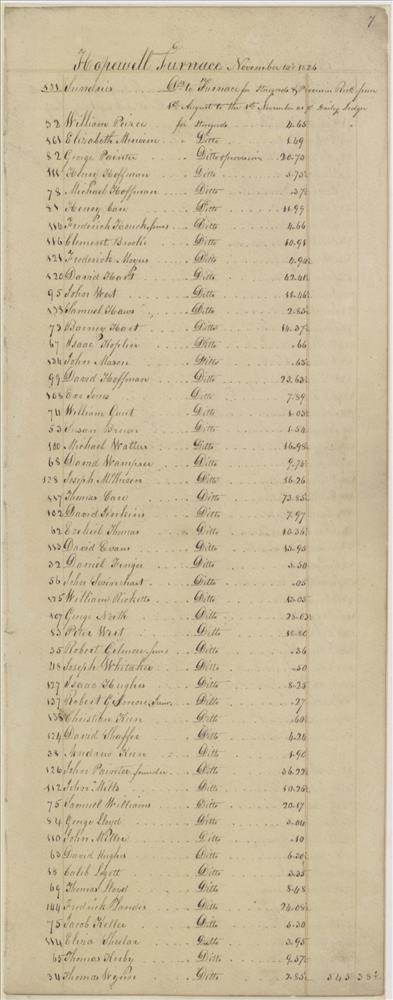 7
Hopewell Furnace November 14th 1826
531 Sundries Drs to Furnace for Sturgunds & Provision Book from
1st August to the 1st November as pr Daily Ledger
32 William Peirce for 4.65
161 Elizabeth Ditto 1.49
82 George Painter Ditto & provision 20.73
111 Henry Hoffman Ditto 3.75
78 Michael Hoffman Ditto .37½
81 Henry Care Ditto 11.99
116 Frederick Houck Junr Ditto 4.66
116 Clement Brooke Ditto 10.91
121 Frederick Moyer Ditto 4.94½
120 David Hart Ditto 42.41
95 John West Ditto 11.46½
133 Samuel Haws Ditto 2.85
73 Barney Hart Ditto 14.37½
67 Isaac Koplin Ditto .66
134 John Mason Ditto .65
99 David Hoffman Ditto 23.63½
108 Eve Jones Ditto 7.89
71 William Guist Ditto 1.03
53 Susan Brown Ditto 1.54
100 Michael Watters Ditto 16.98
68 David Wampser Ditto 9.75
128 Joseph McKewen Ditto 16.26
117 Thomas Care Ditto 73.85
102 David Jenkins Ditto 7.97
62 Ezekiel Thomas Ditto 10.36½
113 David Evans Ditto 13.95
32 Daniel Ditto 3.50
56 John Swinehart Ditto .05
125 William Ricketts Ditto 13.05
107 George North Ditto 28.03½
83 Peter West Ditto 10.80
35 Robert Gilmore Junr Ditto .36
118 Joseph Whitaker Ditto .50
127 Isaac Hughes Ditto 8.25
137 Robert Junr Ditto .27
138 Christian Kern Ditto .60
124 David Shaffer Ditto 4.26
38 Andrew Kern Ditto 1.90
126 John Painter founder Ditto 36.22½
112 John Mills Ditto 10.76½
75 Samuel Williams Ditto 20.17
84 George Lloyd Ditto 3.04
110 John Miller Ditto .10
63 David Hughes Ditto 6.30½
18 Caleb Ditto 3.35
69 Thomas Lloyd Ditto 8.48
144 Fredrick Ditto 24.08½
75 Jacob Keller Ditto 5.30
114 Eliza Ditto 3.95
65 Thomas Kirby Ditto 9.57½
34 Thomas Wynne Ditto 2.85½ 545 38½